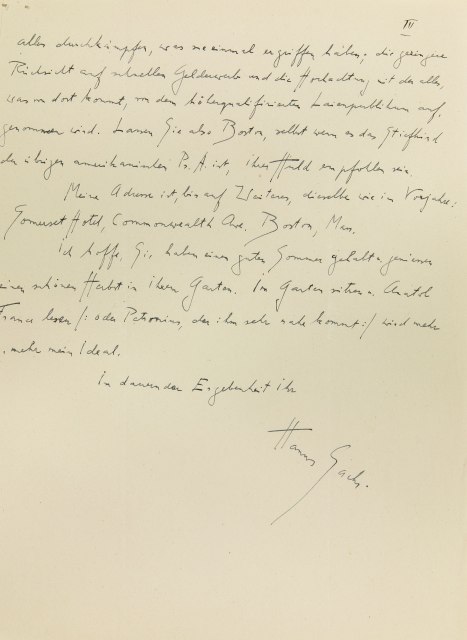 III
alles durchkämpfen, was sie einmal ergriffen haben; die geringere
Rücksicht auf schnellen Gelderwerb und die Hochachtung mit der alles,
was von dort kommt, von dem höherqualifizierten Laienpublikum auf-
genommen wird. Lassen Sie also Boston, selbst wenn es das Stiefkind
der übrigen amerikanischen Ps.A. ist, Ihrer Huld empfohlen sein.
Meine Adresse ist, bis auf Weiteres, dieselbe wie im Vorjahre:
Somerset Hotel, Commonwealth Ave. Boston, Mass.
Ich hoffe, Sie haben einen guten Sommer gehabt u. geniessen
einen schönen Herbst in Ihrem Garten. Im Garten sitzen u. Anatol
France lesen /: oder Petronius, der ihm sehr nahe kommt :/ wird mehr
u. mehr mein Ideal.
In dauernder Ergebenheit Ihr
Hanns Sachs.